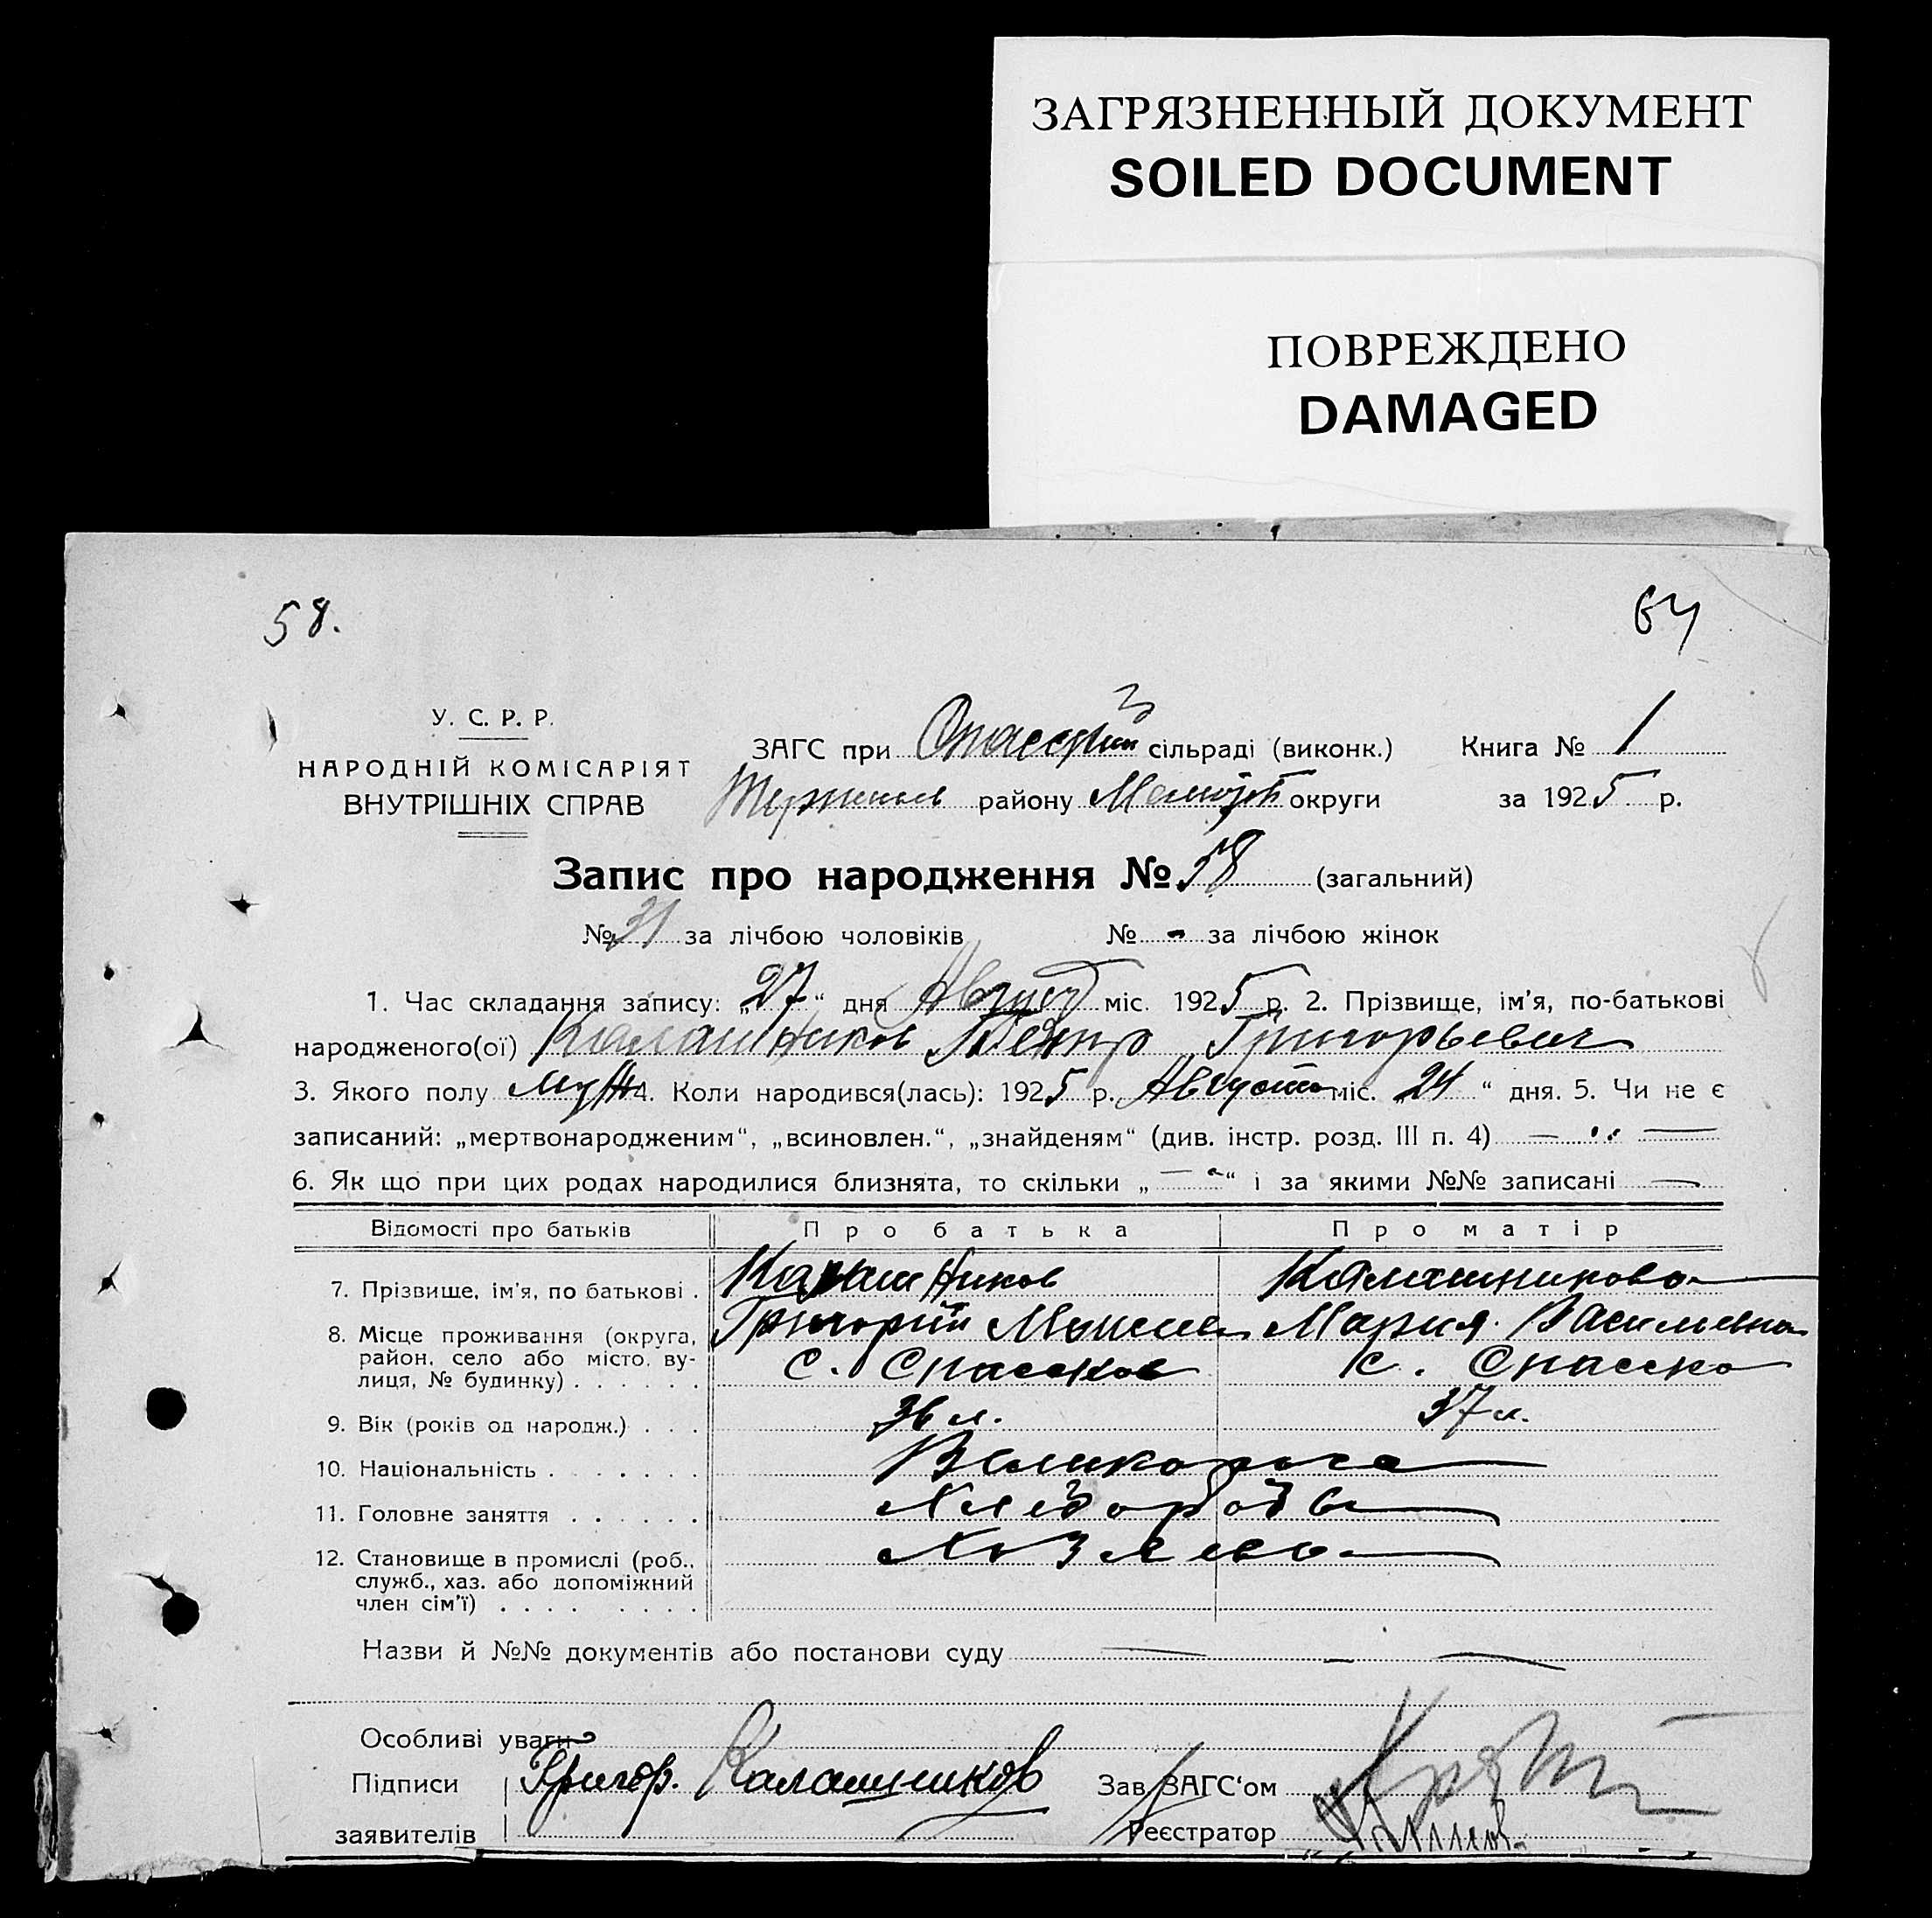 ЗАГРЯЗНЕННЫЙ ДОКУМЕНТ
SOILED DOCUMENT
ПОВРЕЖДЕНО
DAMAGED
58. 64
У. С. Р. Р.
НАРОДНІЙ КОМІСАРІЯТ
ВНУТРІШНІХ СПРАВ
ЗАГС при Спасский сільраді (виконк.) Книга № 1
району округи за 1925 р.
Запис про народження № 58 (загальний)
№ 31 за лічбою чоловіків № - за лічбою жінок
1. Час складання запису: „27“ дня Август міс. 1925 р. 2. Прізвище, ім'я, по-батькові
народженого(ої) Калашников Петр Григорьевич
3. Якого полу Муж 4. Коли народився(лась): 1925 р. Август міс. „24“ дня. 5. Чи не є
записаний: „мертвонародженим“, „всиновлен.“, „знайденям“ (див. інстр. розд. III п. 4) —
6. Як що при цих родах народилися близнята, то скільки „—“ і за якими №№ записані —
Відомості про батьків Про батька Про матір
7. Прізвище, ім'я, по батькові . Калашников Калашникова
Григорий Мария Васильевна
8. Місце проживання (округа,
район, село або місто, ву-
лиця, № будинку) . . . . . . с. Спасское с. Спасско
9. Вік (років од народж.) . . . 36 л. 37 л.
10. Національність . . . . . . . Великороса
11. Головне заняття . . . . . . Хлебороб
12. Становище в промислі (роб.,
служб., хаз. або допоміжний
член сім'ї) . . . . . . . .
Назви й №№ документів або постанови суду — — —
Особливі уваги
Підписи Григор. Калашников Зав. ЗАГС‘ом
заявителів Реєстратор